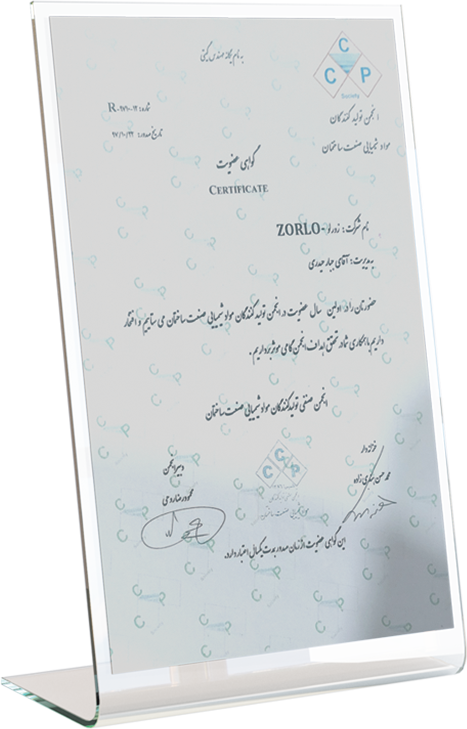 به نام یگانه مهندس گیتی
C
C P
Society
انجمن تولید کنندگان
مواد شیمیایی صنعت ساختمان
شماره: R-۰۹۷۱۰۰۱۲
تاریخ صدور: ۹۷/۱۰/۲۳
گواهی عضویت
CERTIFICATE
نام شرکت: زورلو -ZORLO
به مدیریت: آقای جبار حیدری
حضورتان را در اولین سال عضویت در انجمن تولید کنندگان مواد شیمیایی صنعت ساختمان می ستاییم و افتخار
داریم با همکاری شما در تحقق اهداف انجمن گامی موثر برداریم.
انجمن صنفی تولید کنندگان مواد شیمیایی صنعت ساختمان
دبیر انجمن
خزانه دار
محمد حسن عسگری زاده
C
C P
این گواهی عضویت از زمان صدور بمدت یکسال اعتبار دارد.